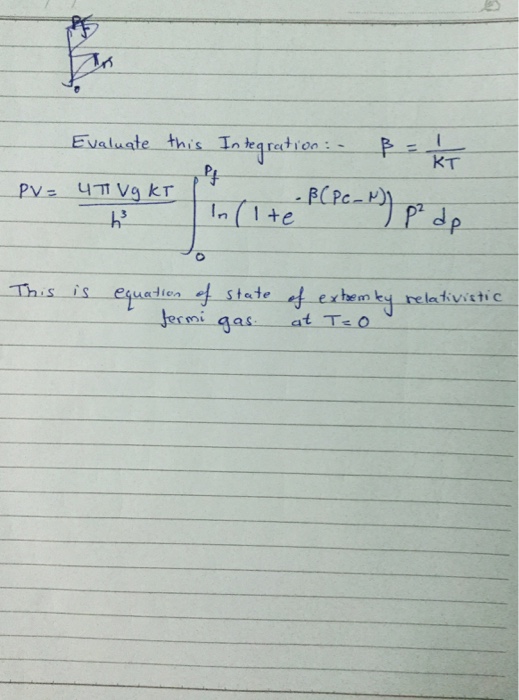 Evaluate this Integration:- β = 1/KT
PV = 4πVg KT / h³ ∫₀^Pf ln(1+e^-β(Pc-μ)) p² dp
This is equation of state of extremky relativistic
fermi gas. at T=0